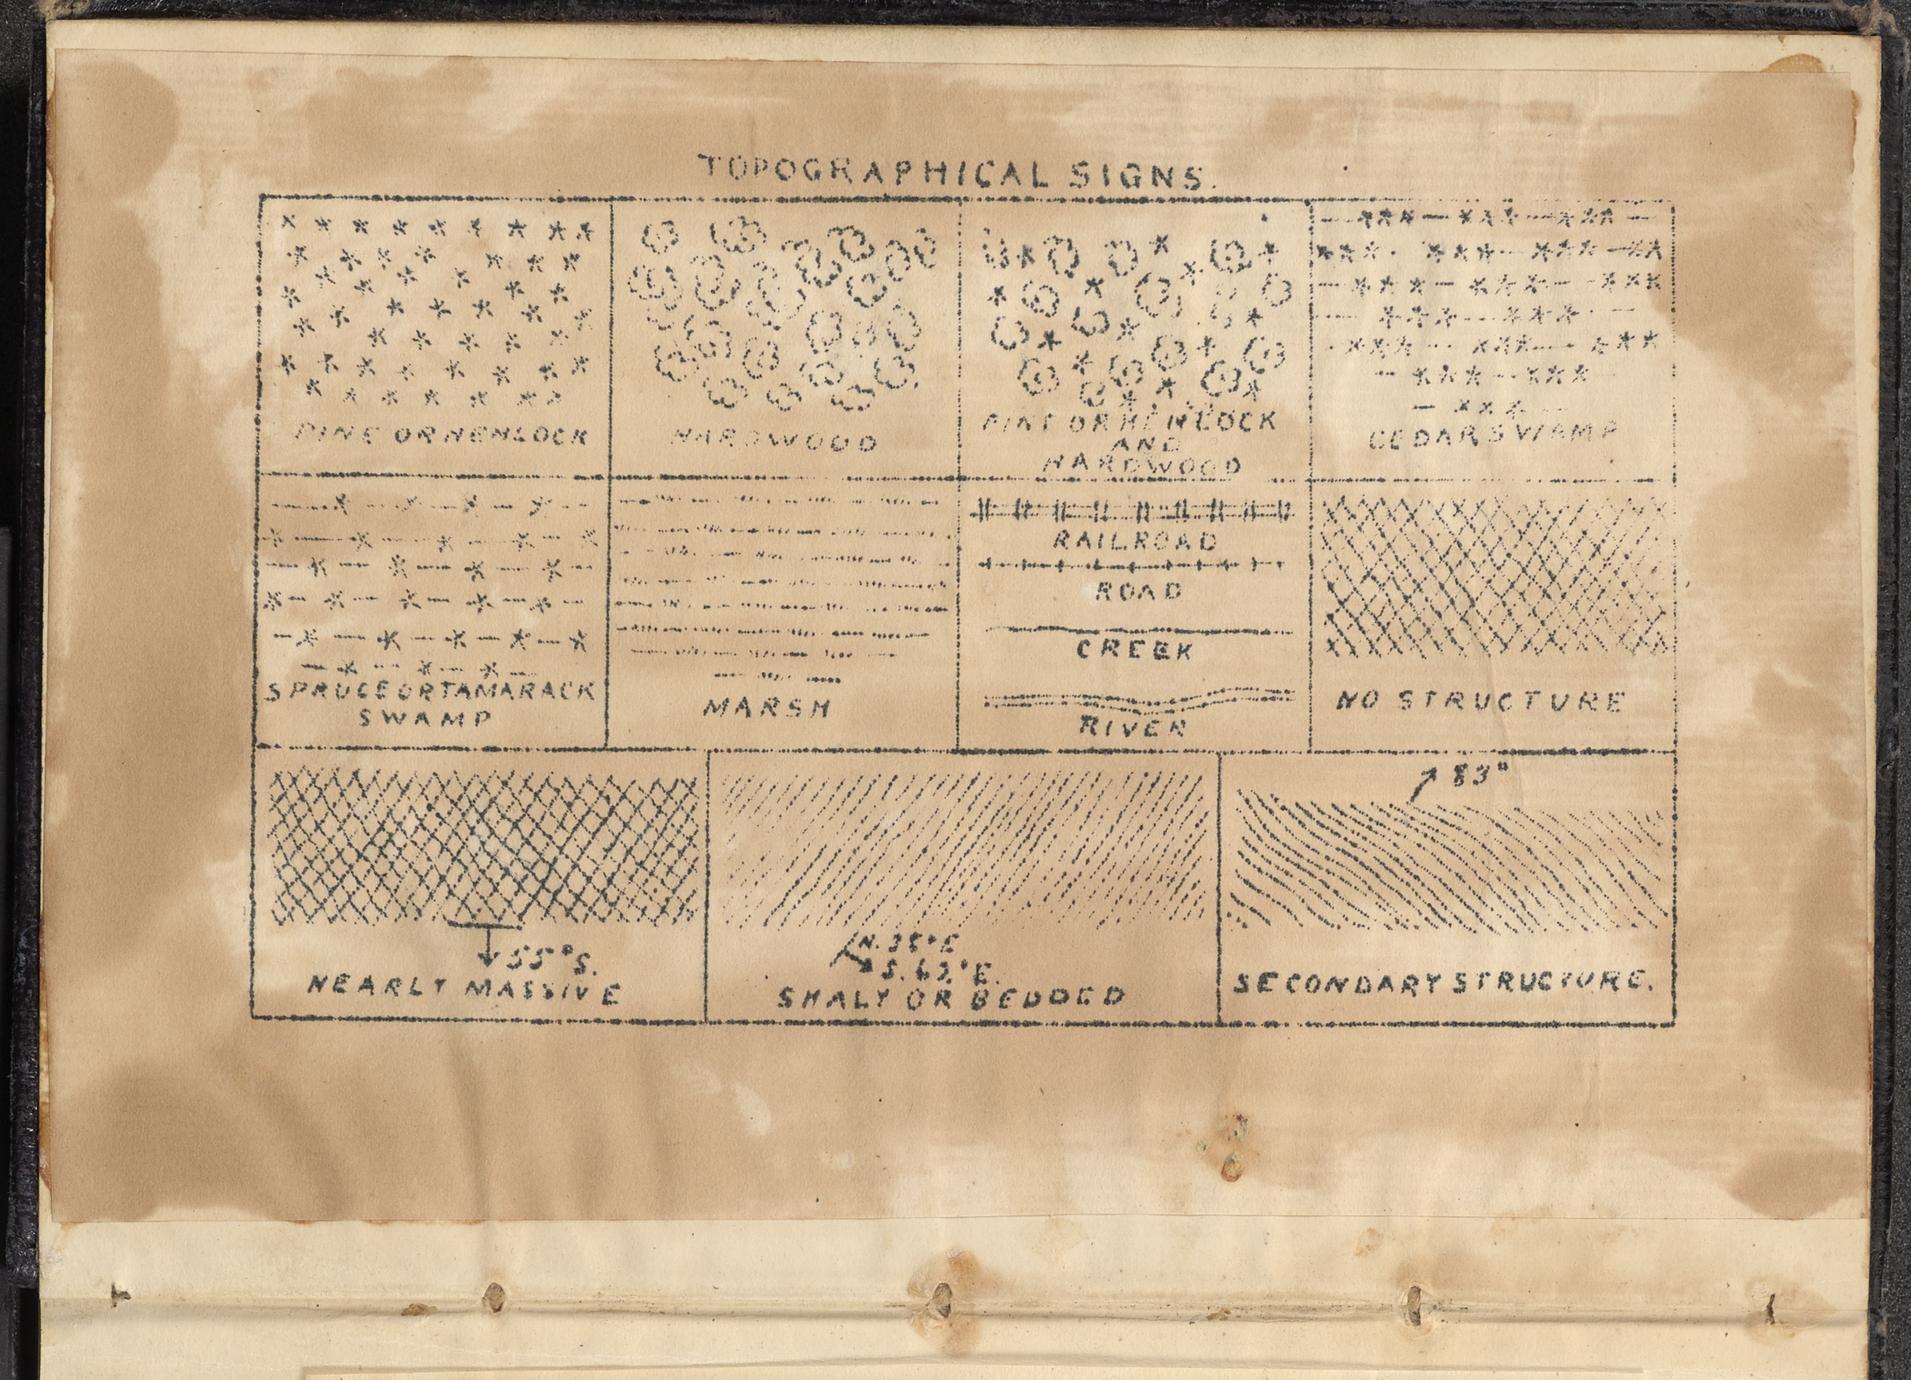 TOPOGRAPHICAL SIGNS.
PINE OR HEMLOCK
HARDWOOD
PINE OR HEMLOCK
AND
HARDWOOD
CEDAR SWAMP
SPRUCE OR TAMARACK
SWAMP
MARSH
RAILROAD
ROAD
CREEK
RIVER
NO STRUCTURE
55°S.
NEARLY MASSIVE
N. 35°E
S. E.
SHALY OR BEDDED
83°
SECONDARY STRUCTURE.